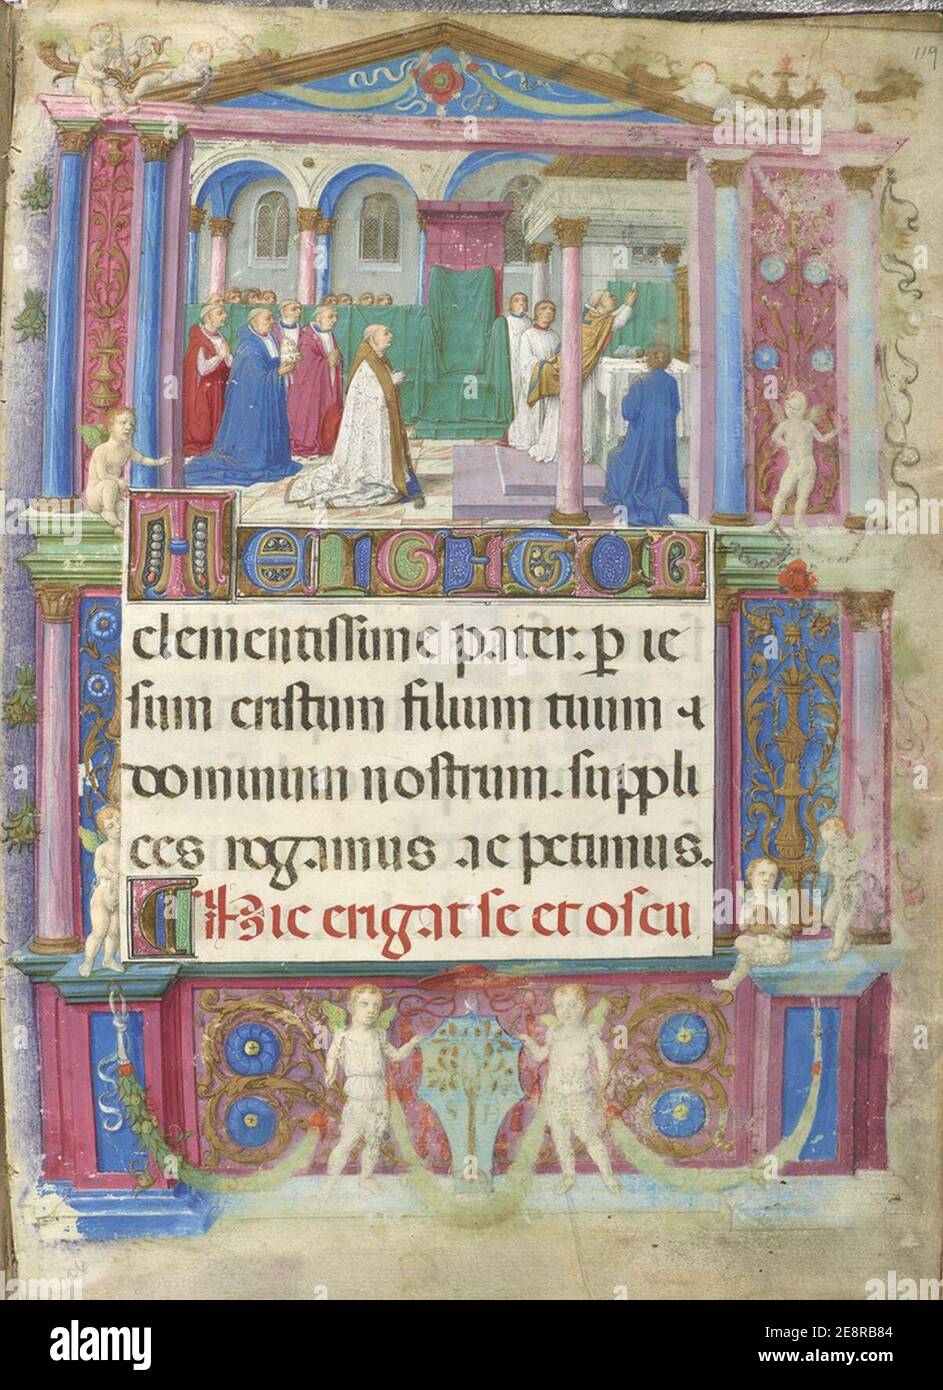 119
TEIGITUR
clementissime pater. ꝑ ie
sum cristum filium tuum ⁊
dominum nostrum. suppli
ces rogamus ac petimus.
Hic erigat se et oscu
alamy
Image ID: 2E8RB84
www.alamy.com